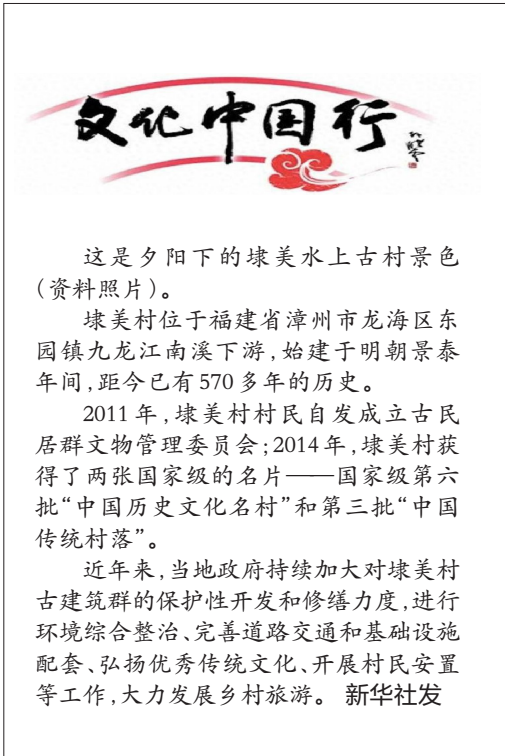 文化中国行
这是夕阳下的埭美水上古村景色
（资料照片）。
埭美村位于福建省漳州市龙海区东
园镇九龙江南溪下游，始建于明朝景泰
年间，距今已有570多年的历史。
2011年，埭美村村民自发成立古民
居群文物管理委员会；2014年，埭美村获
得了两张国家级的名片——国家级第六
批“中国历史文化名村”和第三批“中国
传统村落”。
近年来，当地政府持续加大对埭美村
古建筑群的保护性开发和修缮力度，进行
环境综合整治、完善道路交通和基础设施
配套、弘扬优秀传统文化、开展村民安置
等工作，大力发展乡村旅游。 新华社发